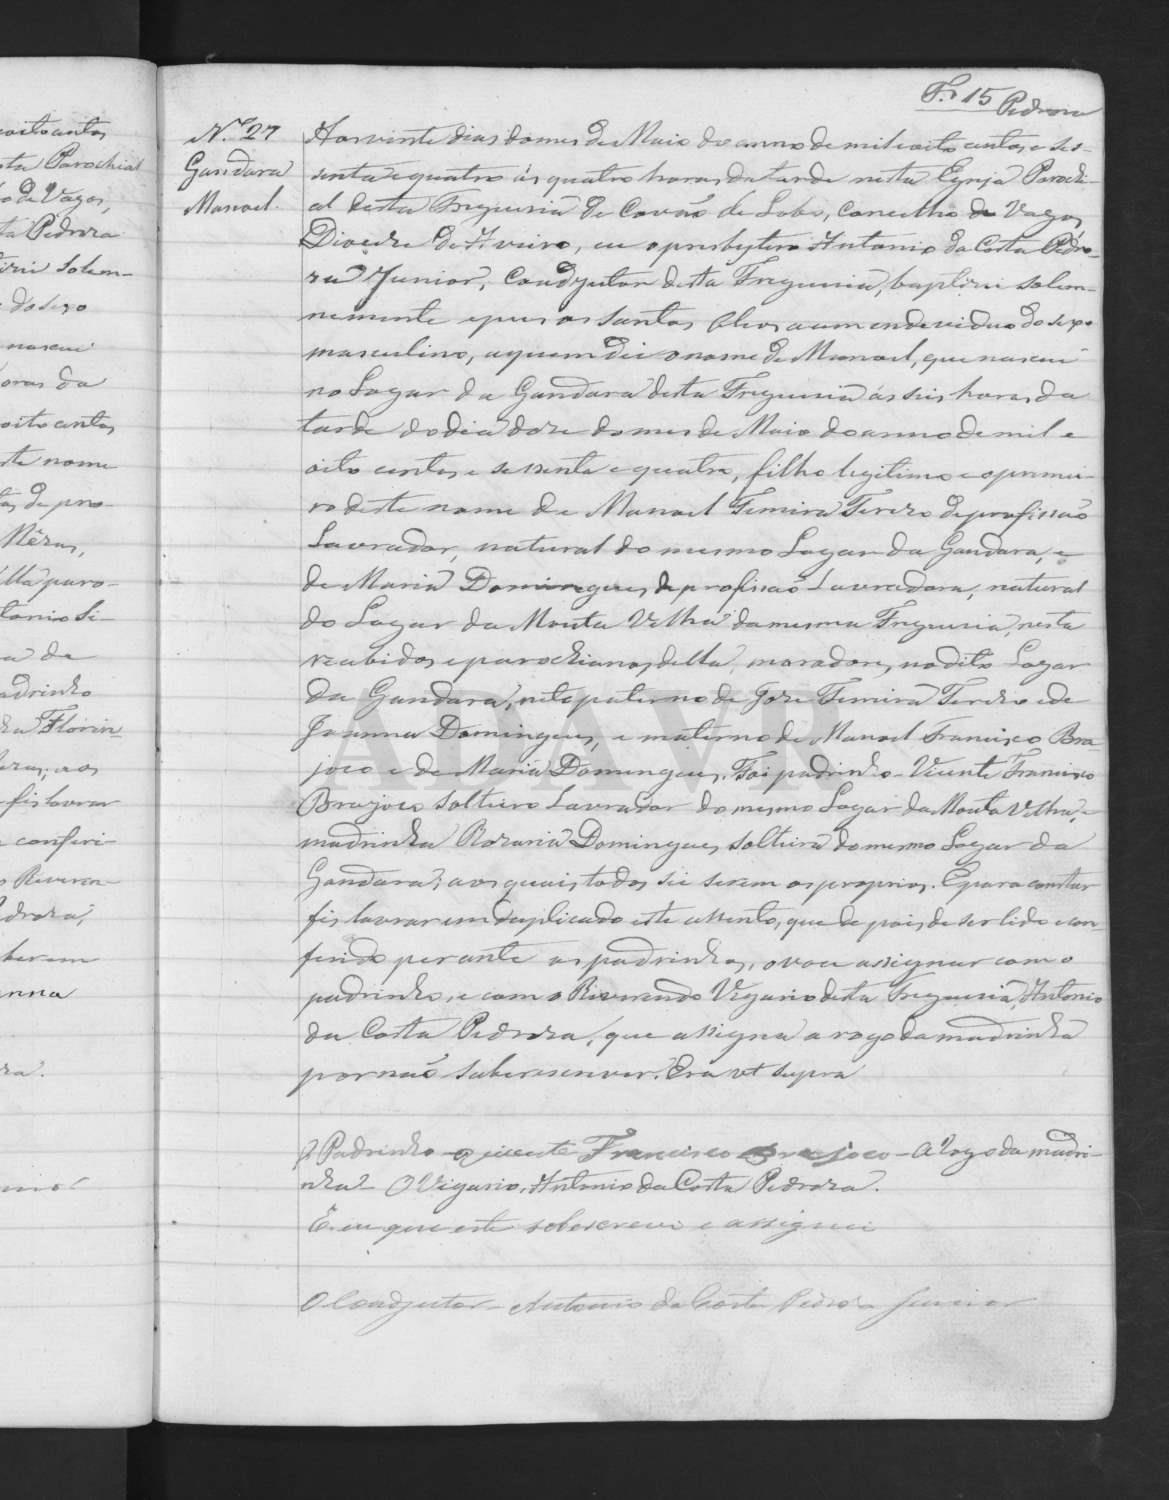 Fl. 15 Pedroza
N.º 27
Gandara
Manoel.
Aos vinte dias do mes de Maio do anno de mil e oito centos e ses-
senta e quatro ás quatro horas da tarde nesta Egreja Parochi-
al desta Freguesia de Covão de Lobo, Concelho de Vagos,
Diocese de Aveiro, eu o presbytero Antonio da Costa Pedro-
za Junior, Coadjutor desta Freguesia, baptizei solem-
nemente e pus os Santos Oleos a um endeviduo do sexo
masculino, a quem dei o nome de Manoel, que nasceu
no Logar da Gandara desta Freguesia ás seis horas da
tarde do dia doze do mes de Maio do anno de mil e
oito centos e sessenta e quatro, filho legitimo e o primei-
ro deste nome de Manoel Ferreira Terezo de profissão
Lavrador, natural do mesmo Logar da Gandara, e
de Maria Domingues, de profissão Lavradora, natural
do Logar da Mouta Velha da mesma Freguesia, nesta
recebidos e parochianos della, moradores no dito Logar
da Gandara, neto paterno de Joze Ferreira Terezo e de
Joanna Domingues, e materno de Manoel Francisco Bra-
joco e de Maria Domingues. Foi padrinho Vicente Francisco
Brajoco solteiro Lavrador do mesmo Logar da Mouta Velha, e
madrinha Rozaria Domingues, solteira do mesmo Logar da
Gandara, aos quais todos sei serem os proprios. E para constar
fis lavrar em duplicado este assento, que depois de ser lido e con-
ferido perante os padrinhos, o vou assignar com o
padrinho, e com o Riverendo Vigario desta Freguesia, Antonio
da Costa Pedroza, que assigna a rogo da madrinha
por não saber escrever. Era ut supra
O Padrinho Vicente Francisco Brajoco - A rogo da madri-
nha O Vigario, Antonio da Costa Pedroza.
E eu que este sobescrevi e assignei
O Coadjutor - Antonio da Costa Pedroza Junior
ADAVR